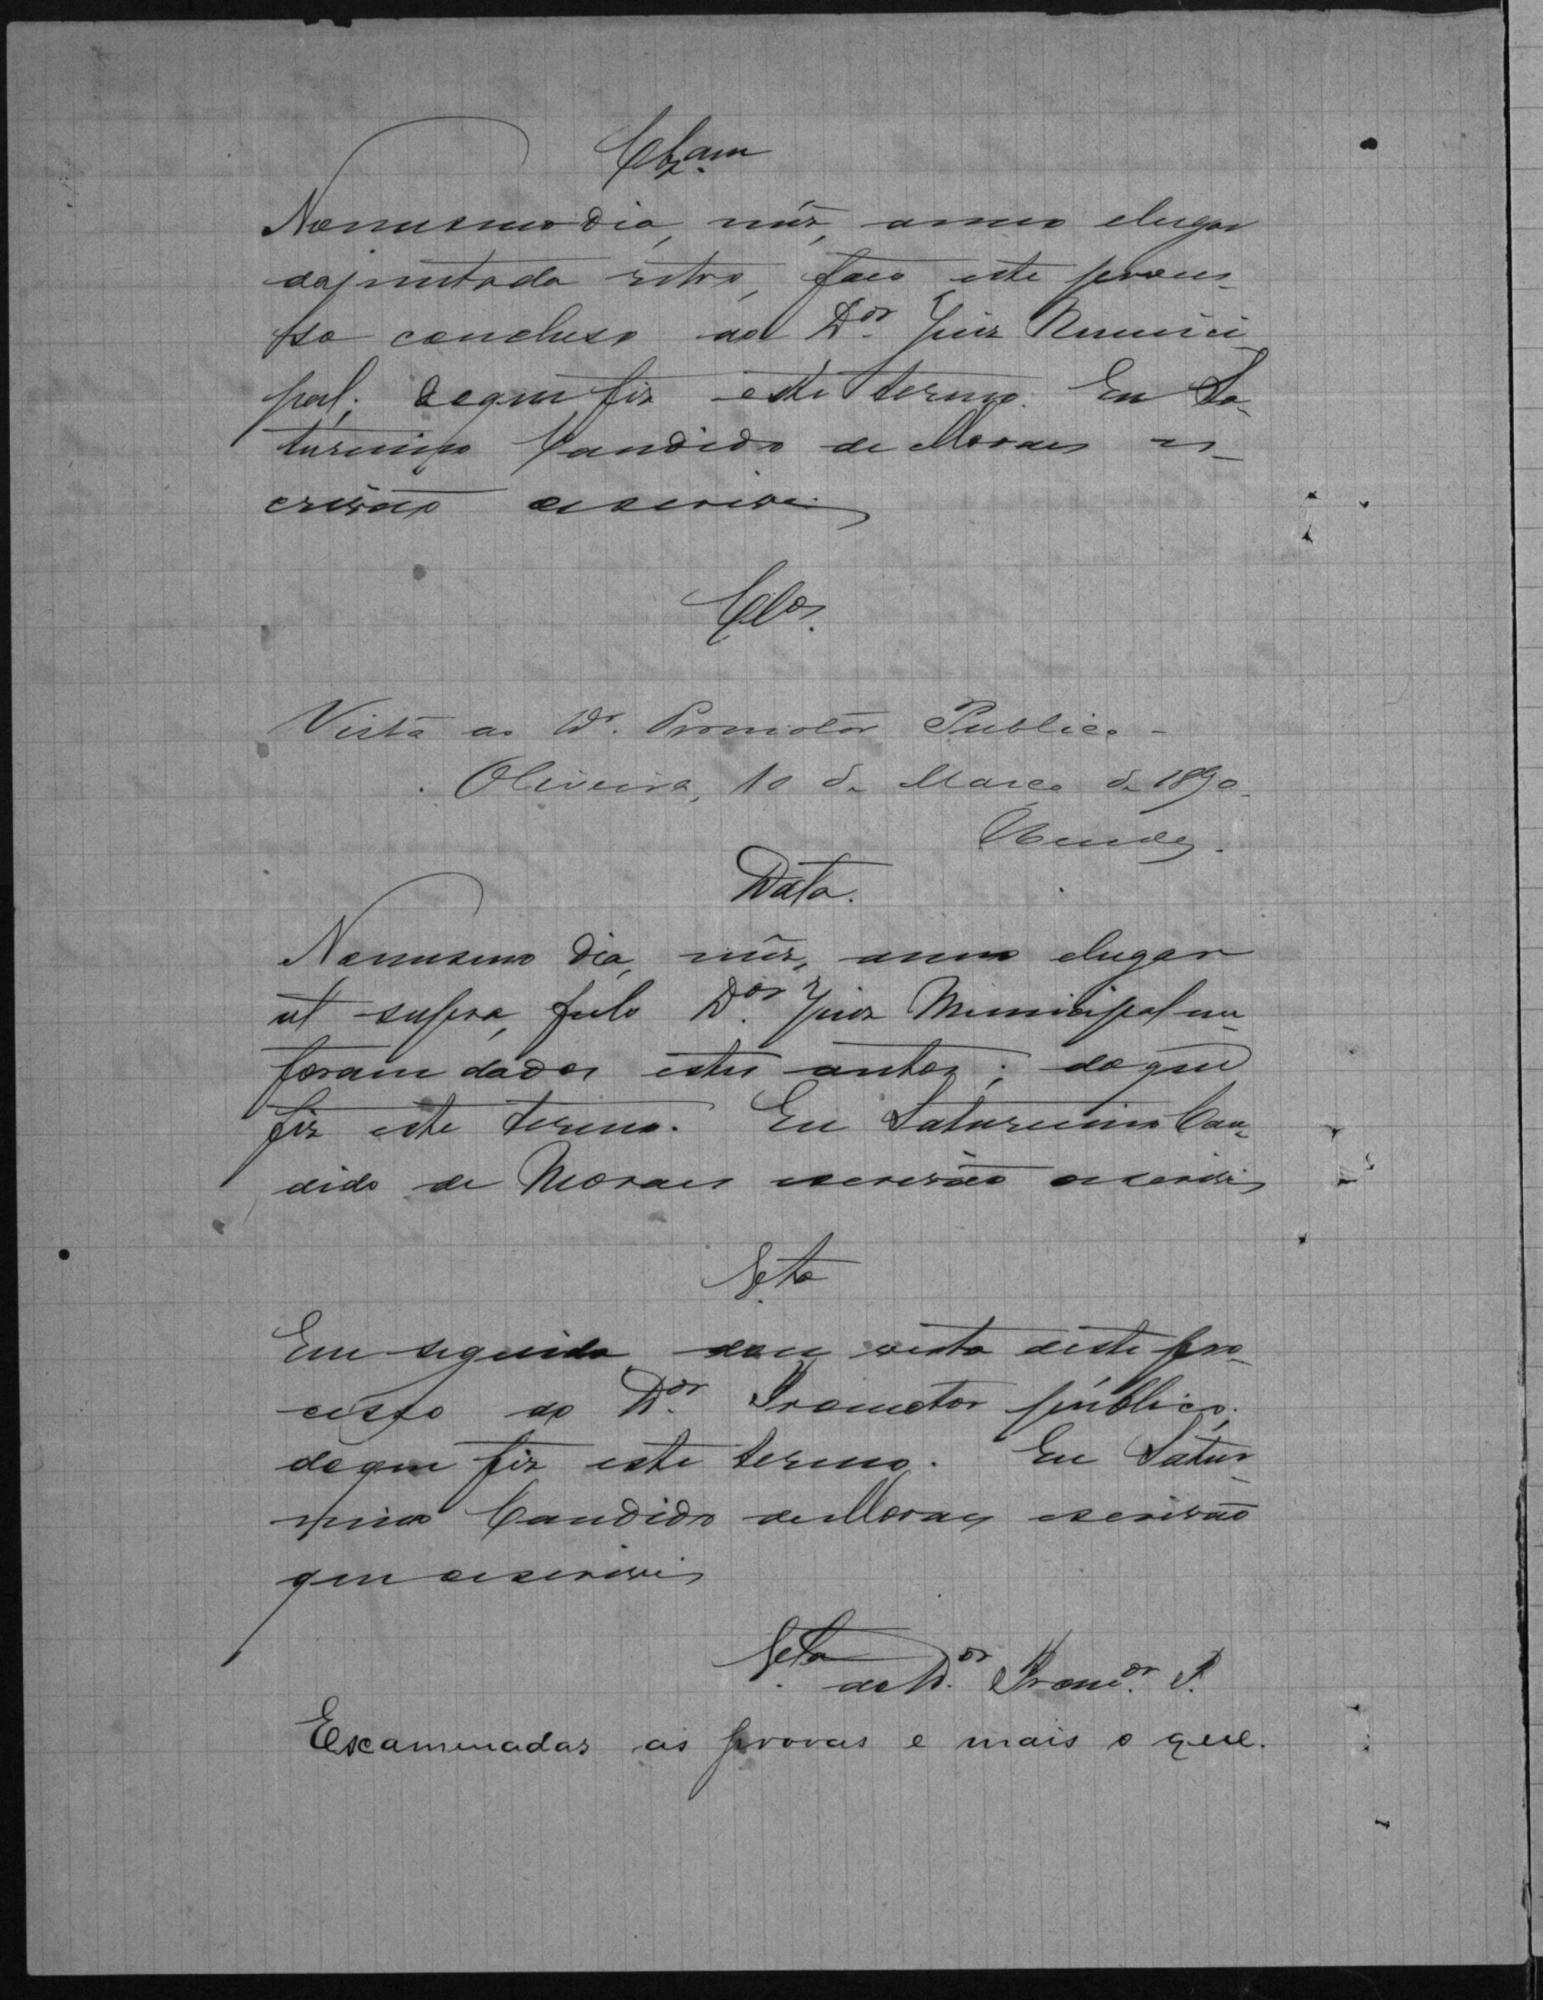 Clzam
No mesmo dia, mêz, anno e lugar
da juntada retro, faço este proces-
so concluso ao Dor Juiz Munici
pal; do que fiz este termo. Eu Sa-
turnino Candido de Moraes es-
crivão o escrivi
Clos.
Vista ao Dr. Promotor Publico -
Oliveira, 10 de Março de 1890.
Mendes.
Data.
No mesmo dia, mêz, anno e lugar
ut supra, pelo Dor Juiz Municipal me
foram dados estes autos; do que
fiz este termo. Eu Saturnino Can-
dido de Moraes escrivão o escrivi
Vta
Em seguida dou vista deste pro-
cesso ao Dor Promotor publico,
do que fiz este termo. Eu Satur-
nino Candido de Moraes escrivão
que o escrivi
Vta
ao Dor Promor P.
Escaminadas as provas e mais o que.